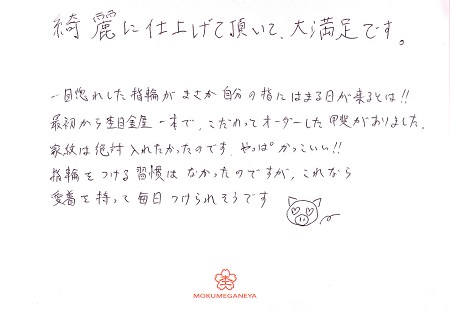 綺麗に仕上げて頂いて、大満足です。
一目惚れした指輪がまさか自分の指にはまる日が来るとは!!
最初から杢目金屋一本で、こだわってオーダーした甲斐がありました。
家紋は絶対入れたかったのです。やっぱかっこいい!!
指輪をつける習慣はなかったのですが、これなら
愛着を持って毎日つけられそうです
MOKUMEGANEYA